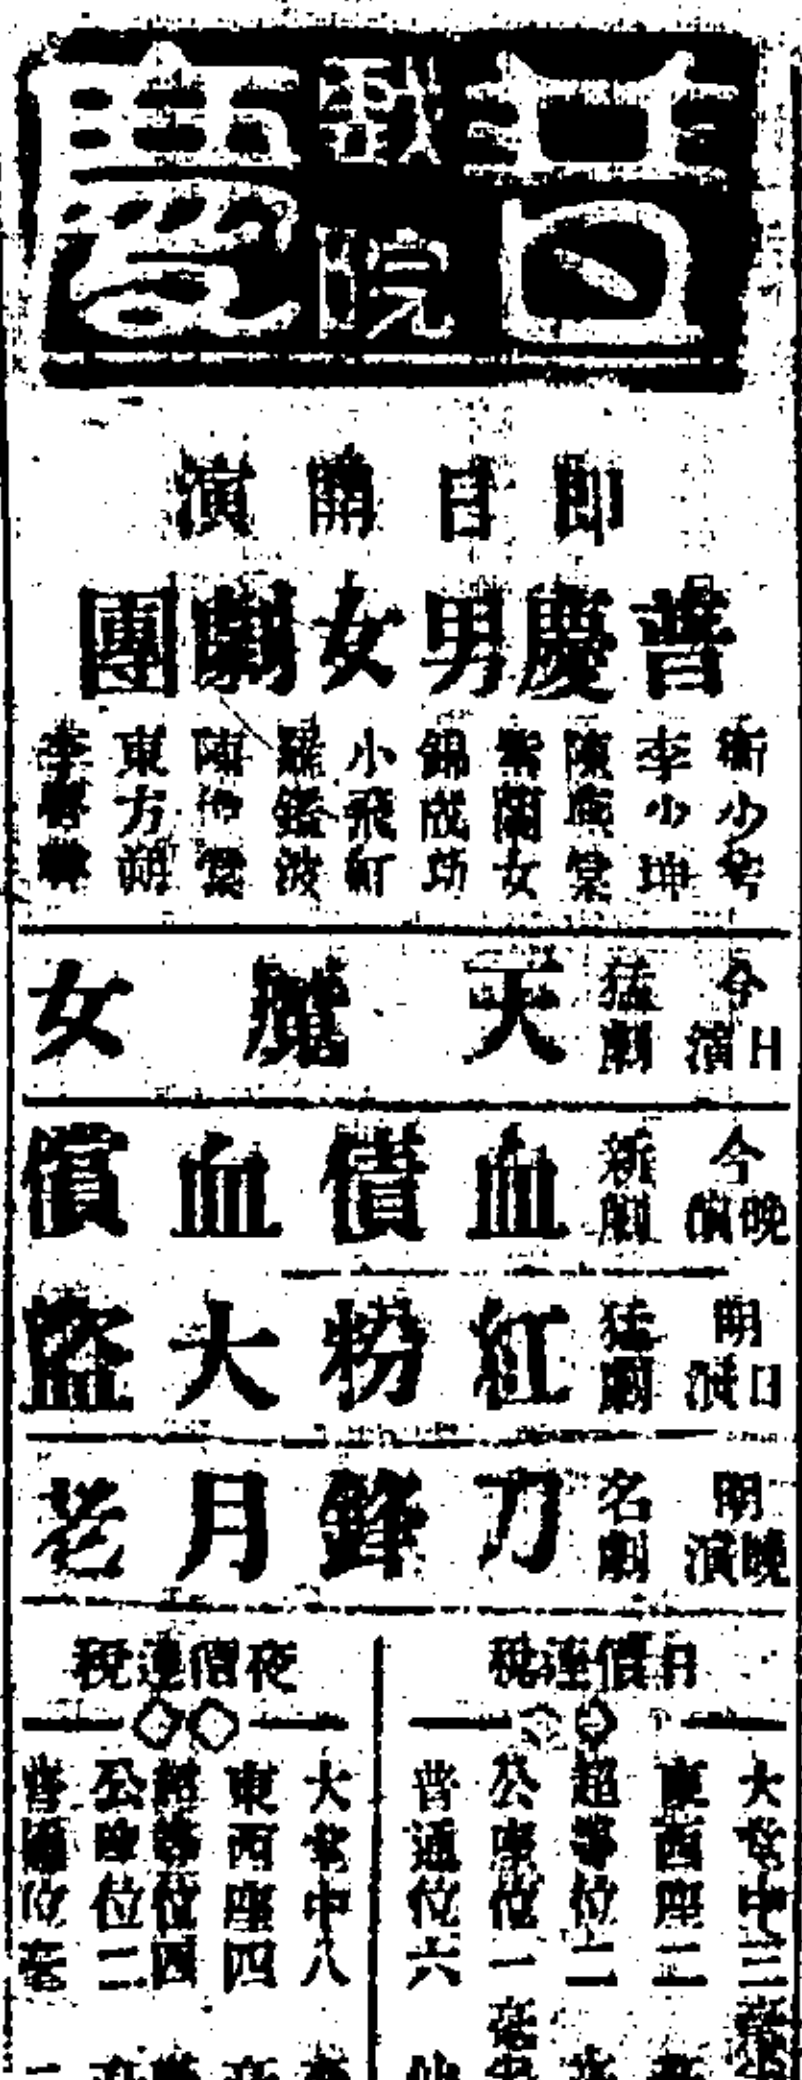 普慶戲院
即日開演
普慶男女劇團
李少坤
紫蘭女
錦成功
小飛紅
羅鑑波
東方朔
今日演 猛劇 天魔女
今晚演 新劇 血債血償
明日演 猛劇 紅粉大盜
明晚演 名劇 刀鋒月老
日價連稅
大堂中三毫
東西座二
超等位二
公座位一毫
普通位六仙
夜價連稅
大堂中八
東西座四
超等位四
公座位二
普通位毫